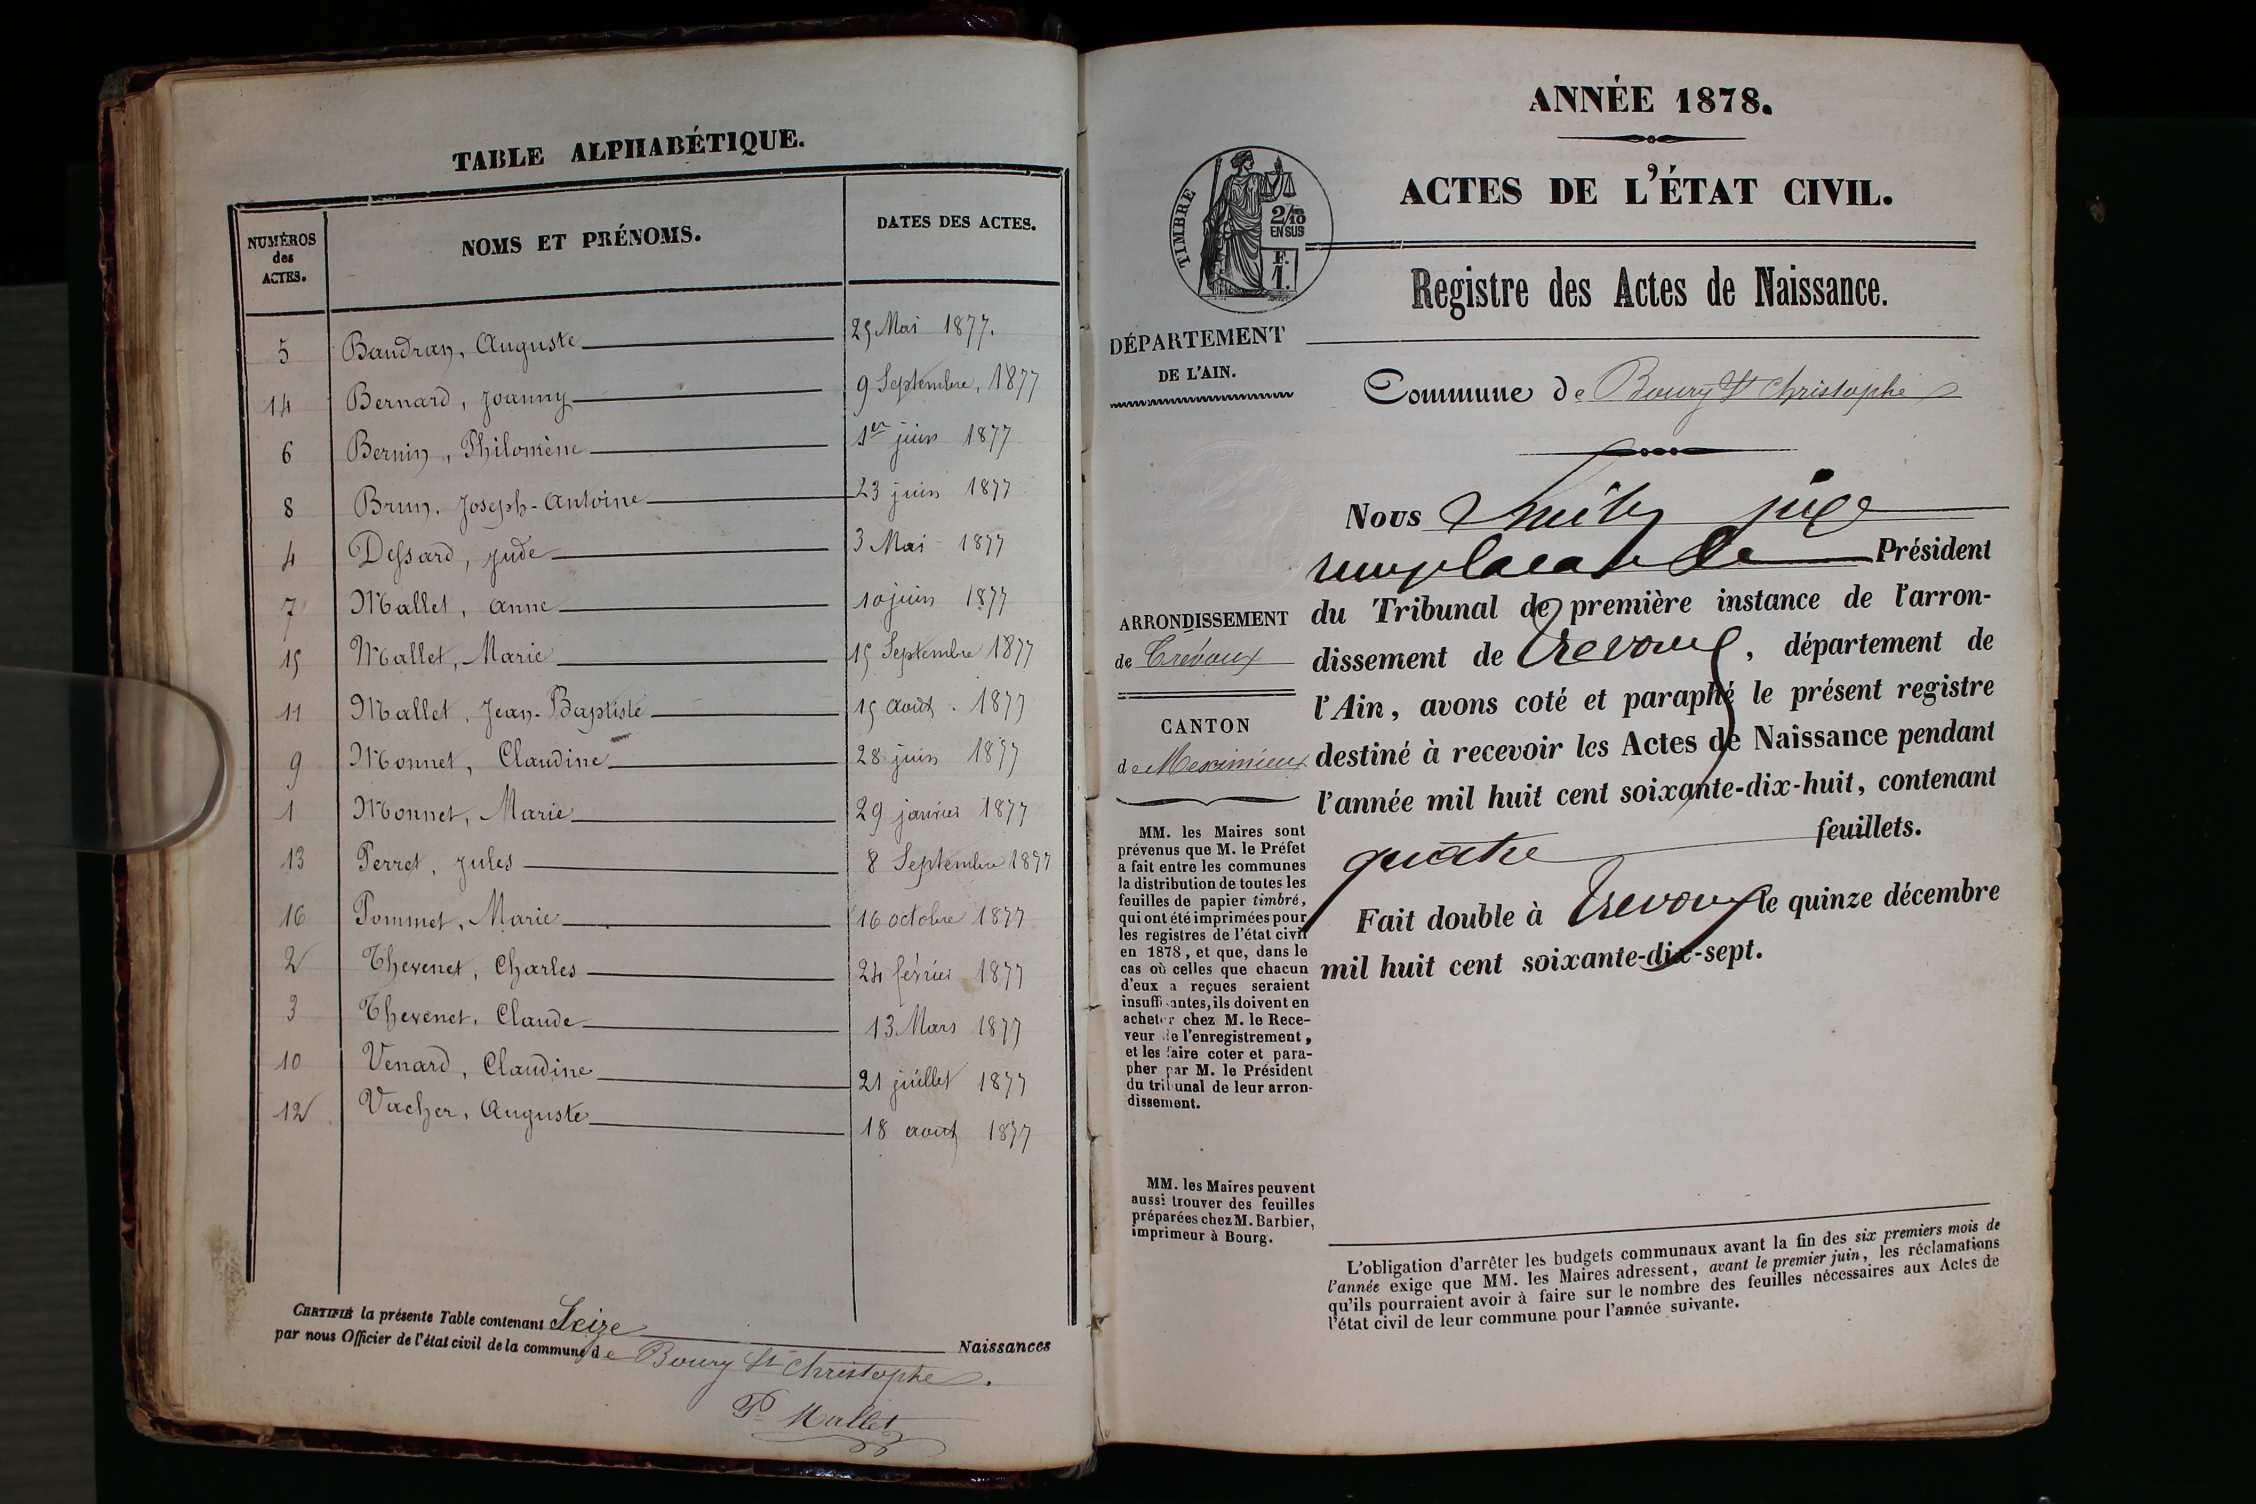 TABLE ALPHABÉTIQUE.
NUMÉROS des ACTES.
NOMS ET PRÉNOMS.
DATES DES ACTES.
5 Baudran, Auguste 25 Mai 1877.
14 Bernard, Joanny 9 Septembre, 1877
6 Bernin, Philomène 1er juin 1877
8 Brun, Joseph-Antoine 23 juin 1877
4 Dessard, Jude 3 Mai 1877
7 Mallet, Anne 10 juin 1877
15 Mallet, Marie 15 Septembre 1877
11 Mallet, Jean-Baptiste 15 août 1877
9 Monnet, Claudine 28 juin 1877
1 Monnet, Marie 29 janvier 1877
13 Perret, Jules 8 Septembre 1877
16 Pommet, Marie 16 octobre 1877
2 Thevenet, Charles 24 février 1877
3 Thevenet, Claude 13 Mars 1877
10 Venard, Claudine 21 juillet 1877
12 Vacher, Auguste 18 août 1877
CERTIFIÉ la présente Table contenant Seize Naissances
par nous Officier de l'état civil de la commune de Bourg St Christophe.
P. Mallet
ANNÉE 1878.
ACTES DE L'ÉTAT CIVIL.
TIMBRE
2/10
EN SUS
F.
1.
Registre des Actes de Naissance.
DÉPARTEMENT
DE L'AIN.
Commune de Bourg St Christophe
Nous juge
remplacant le Président
du Tribunal de première instance de l'arron-
dissement de Trevoux, département de
l'Ain, avons coté et paraphé le présent registre
destiné à recevoir les Actes de Naissance pendant
l'année mil huit cent soixante-dix-huit, contenant
quatre feuillets.
Fait double à Trevoux le quinze décembre
mil huit cent soixante-dix-sept.
ARRONDISSEMENT
de Trévoux
CANTON
de Meximieux
MM. les Maires sont
prévenus que M. le Préfet
a fait entre les communes
la distribution de toutes les
feuilles de papier timbré,
qui ont été imprimées pour
les registres de l'état civil
en 1878, et que, dans le
cas où celles que chacun
d'eux a reçues seraient
insuffisantes, ils doivent en
acheter chez M. le Rece-
veur de l'enregistrement,
et les faire coter et para-
pher par M. le Président
du tribunal de leur arron-
dissement.
MM. les Maires peuvent
aussi trouver des feuilles
préparées chez M. Barbier,
imprimeur à Bourg.
L'obligation d'arrêter les budgets communaux avant la fin des six premiers mois de
l'année exige que MM. les Maires adressent, avant le premier juin, les réclamations
qu'ils pourraient avoir à faire sur le nombre des feuilles nécessaires aux Actes de
l'état civil de leur commune pour l'année suivante.